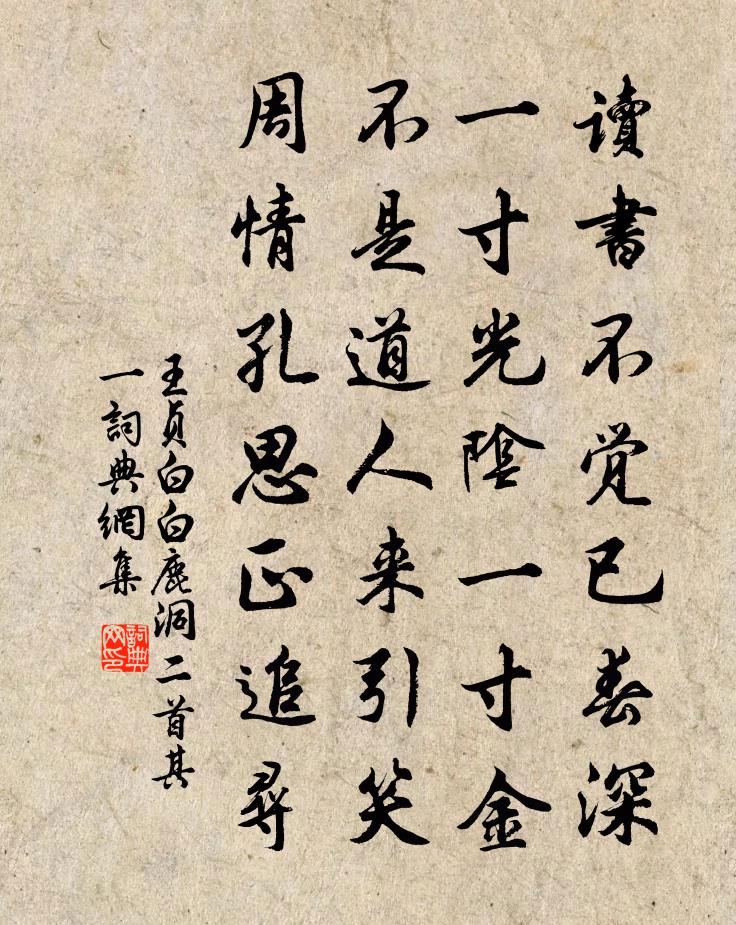 讀書不覚已春深
一寸光陰一寸金
不是道人来引笑
周情孔思正追尋
王貞白白鹿洞二首其
一詞典網集
詞典网印